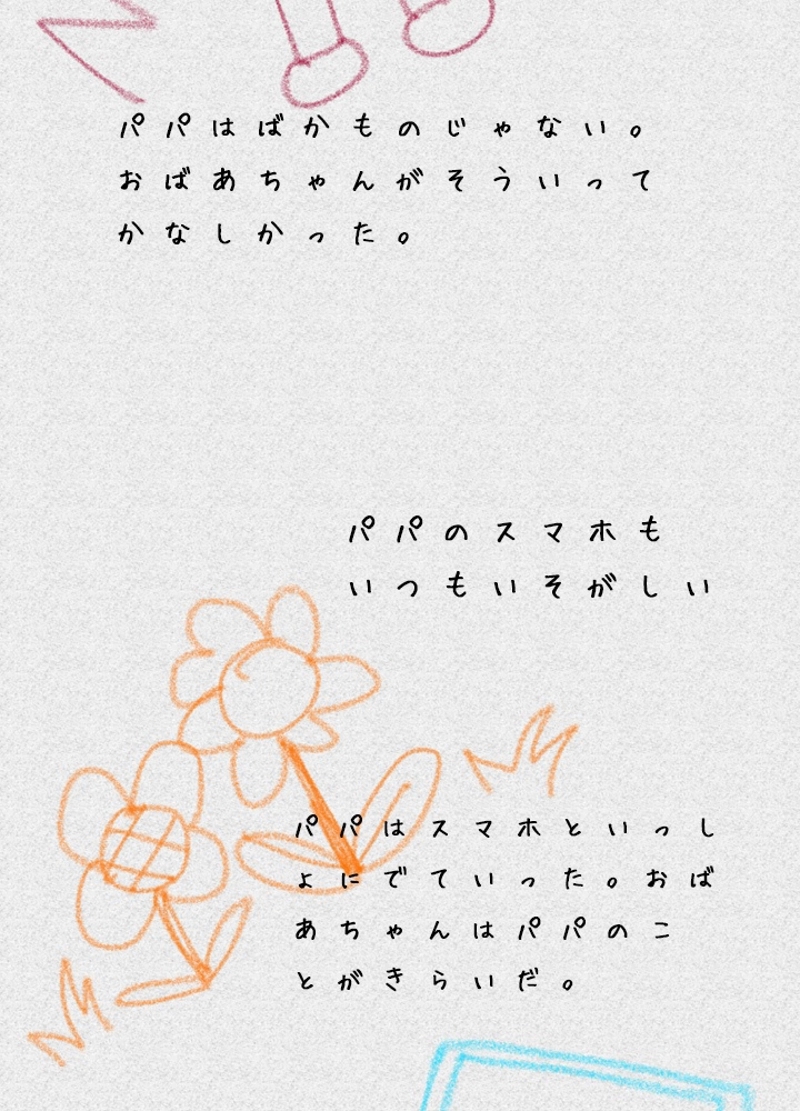 パパはばかものじゃない。
おばあちゃんがそういって
かなしかった。
パパのスマホも
いつもいそがしい
パパはスマホといっし
ょにでていった。おば
あちゃんはパパのこ
とがきらいだ。